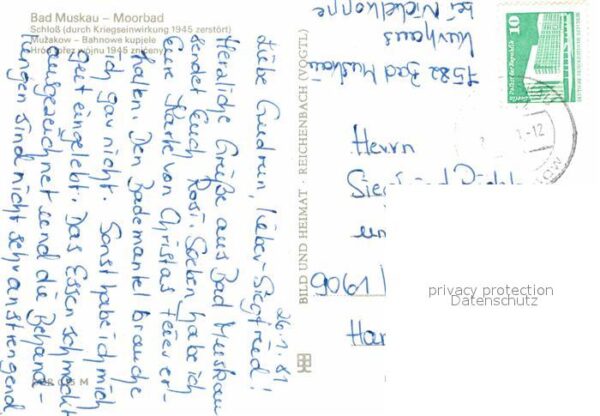 Bad Muskau – Moorbad
Schloß (durch Kriegseinwirkung 1945 zerstört)
Mužakow – Bahnowe kupjele
Hród (přez wójnu 1945 zničeny)
26.1.81
Liebe Gudrun, lieber Siegfried!
Herzliche Grüße aus Bad Muskau
sendet Euch Rosi. Soeben habe ich
Eure Karte von Christas Feier er-
halten. Den Bademantel brauche
ich gar nicht. Sonst habe ich mich
gut eingelebt. Das Essen schmeckt
ausgezeichnet und die Behand-
lungen sind nicht sehr anstrengend
BILD UND HEIMAT · REICHENBACH (VOGTL)
M
Kurhaus
7582 Bad Muskau
10
-12
Herrn
1906
Har
privacy protection
Datenschutz